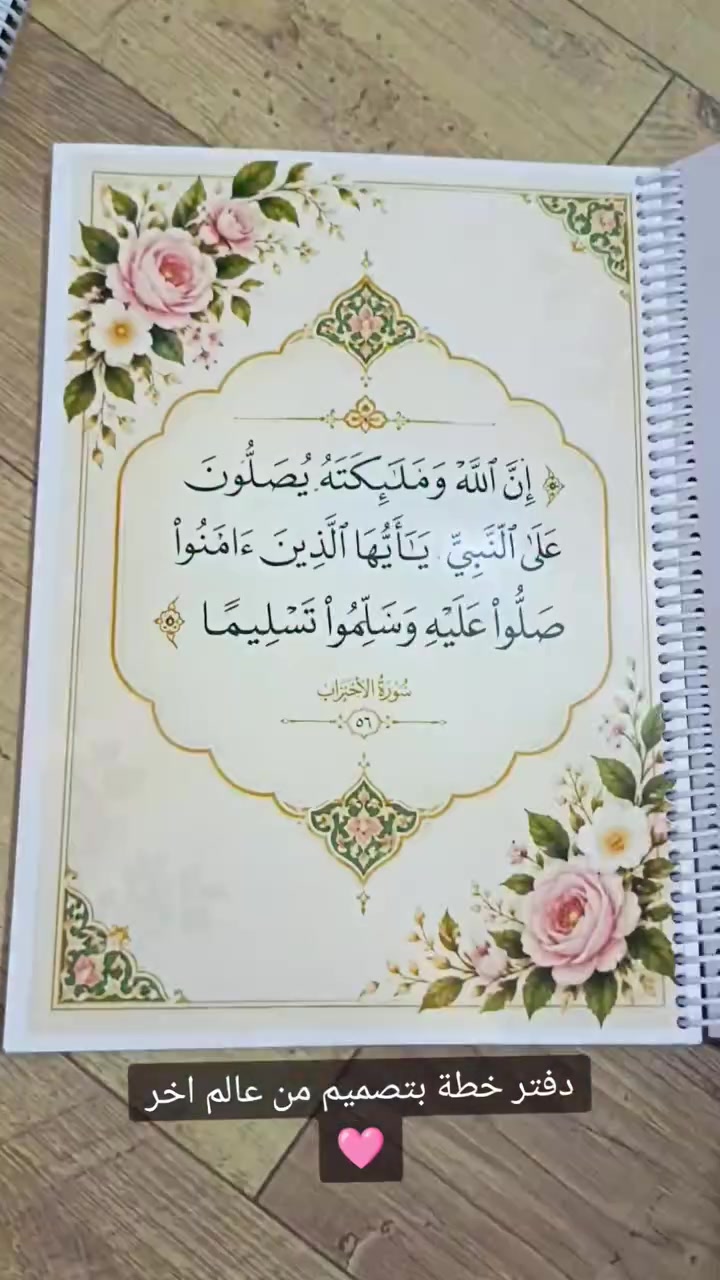 إِنَّ ٱللَّهَ وَمَلَـٰٓئِكَتَهُۥ يُصَلُّونَ
عَلَى ٱلنَّبِيِّ يَـٰٓأَيُّهَا ٱلَّذِينَ ءَامَنُوا۟
صَلُّوا۟ عَلَيْهِ وَسَلِّمُوا۟ تَسْلِيمًا
سُورَةُ الأَحْزَاب
٥٦
دفتر خطة بتصميم من عالم اخر
🩷